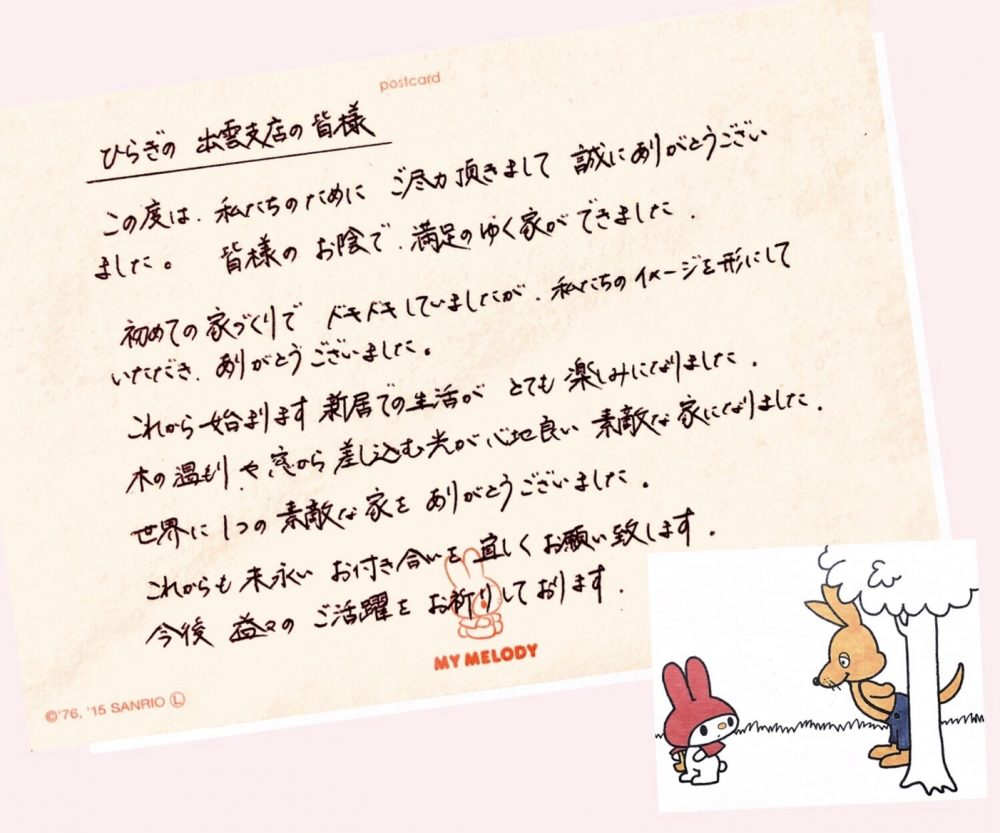 postcard
ひらぎの 出雲支店の皆様
この度は、私たちのために ご尽力頂きまして 誠にありがとうござい
ました。 皆様の お陰で、満足のゆく家ができました.
初めての家づくりで ドキドキしていましたが、私たちのイメージを形にして
いただき、ありがとうございました。
これから始まります 新居での生活が とても 楽しみになりました.
木の温もり や 窓から差し込む光が心地良い 素敵な家になりました.
世界に1つの 素敵な家を ありがとうございました.
これからも 末永い お付き合いを 宜しくお願い致します.
今後 益々の ご活躍を お祈りしております.
MY MELODY
©'76, '15 SANRIO Ⓛ